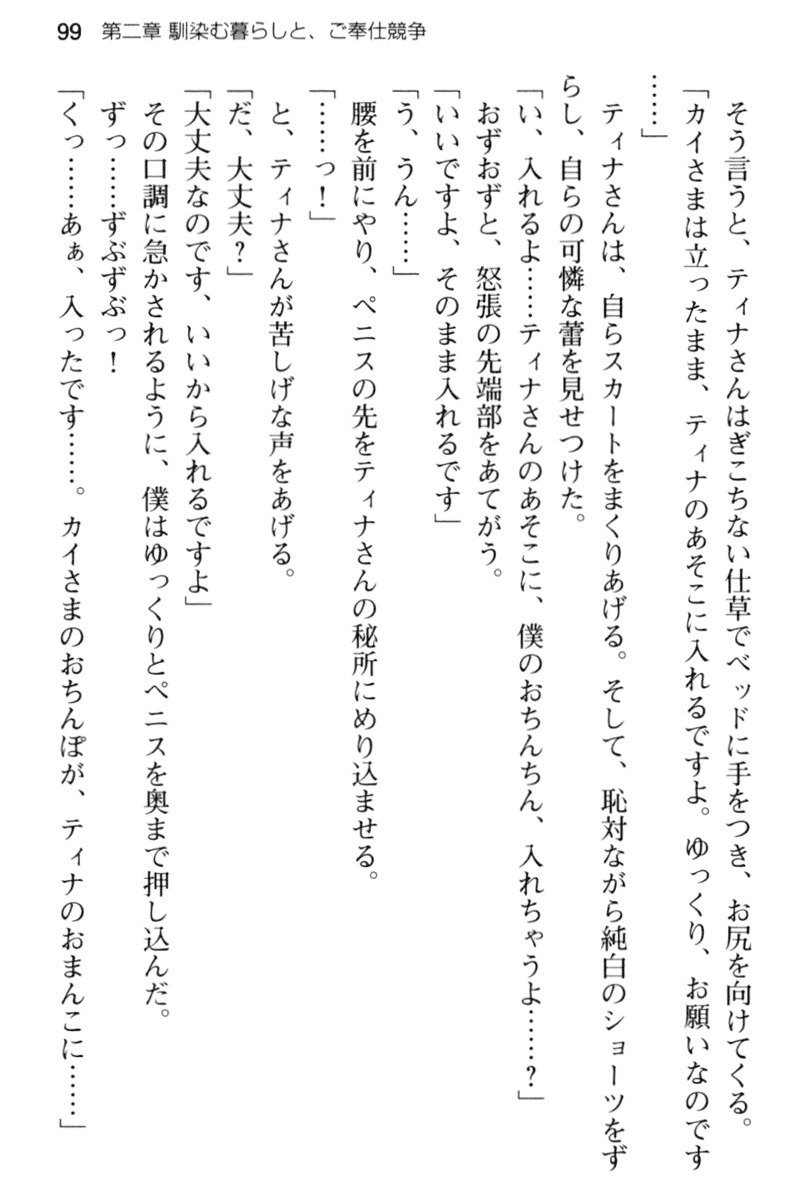 99 第二章 馴染む暮らしと、ご奉仕競争
そう言うと、ティナさんはぎこちない仕草でベッドに手をつき、お尻を向けてくる。
「カイさまは立ったまま、ティナのあそこに入れるですよ。ゆっくり、お願いなのです
……」
ティナさんは、自らスカートをまくりあげる。そして、恥対ながら純白のショーツをず
らし、自らの可憐な蕾を見せつけた。
「い、入れるよ……ティナさんのあそこに、僕のおちんちん、入れちゃうよ……？」
おずおずと、怒張の先端部をあてがう。
「いいですよ、そのまま入れるです」
「う、うん……」
腰を前にやり、ペニスの先をティナさんの秘所にめり込ませる。
「……っ！」
と、ティナさんが苦しげな声をあげる。
「だ、大丈夫？」
「大丈夫なのです、いいから入れるですよ」
その口調に急かされるように、僕はゆっくりとペニスを奥まで押し込んだ。
ずっ……ずぶずぶっ！
「くっ……あぁ、入ったです……。カイさまのおちんぽが、ティナのおまんこに……」